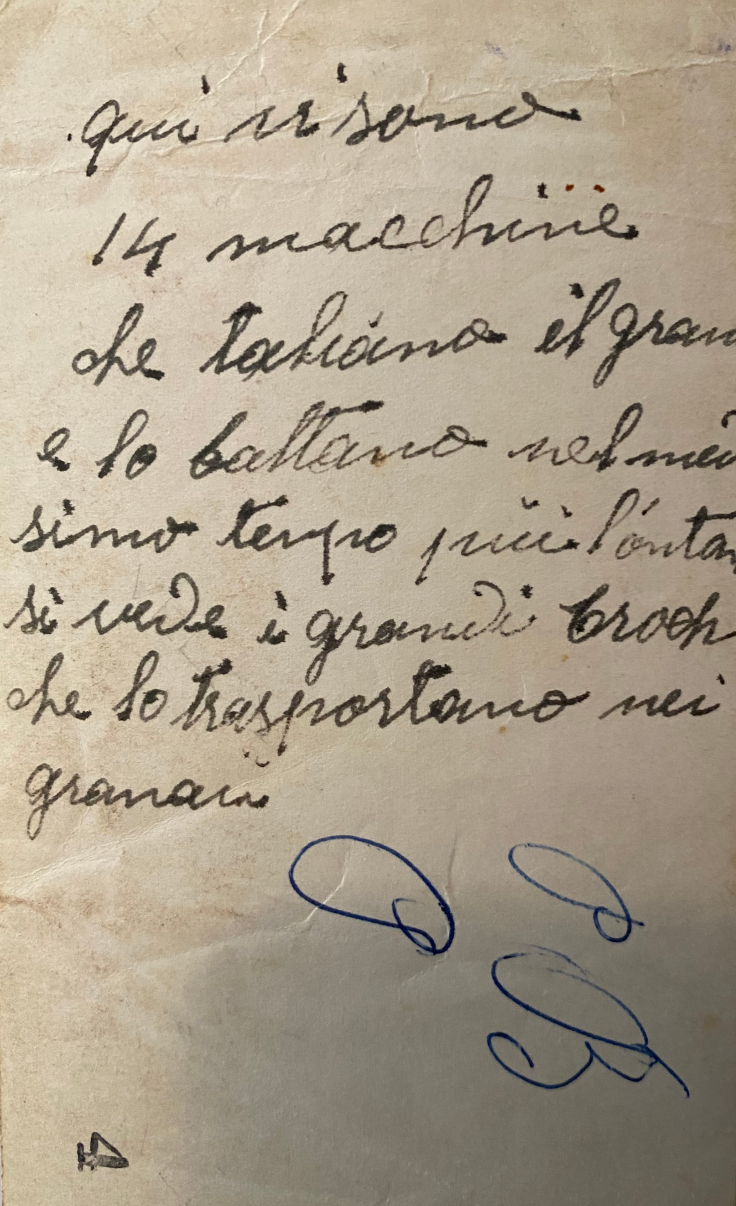 qui vi sono
14 macchine
che taliano il gran
e lo battano nel me
simo tempo più lontan
si vede i grandi troch
che lo trasportano nei
granaii
4